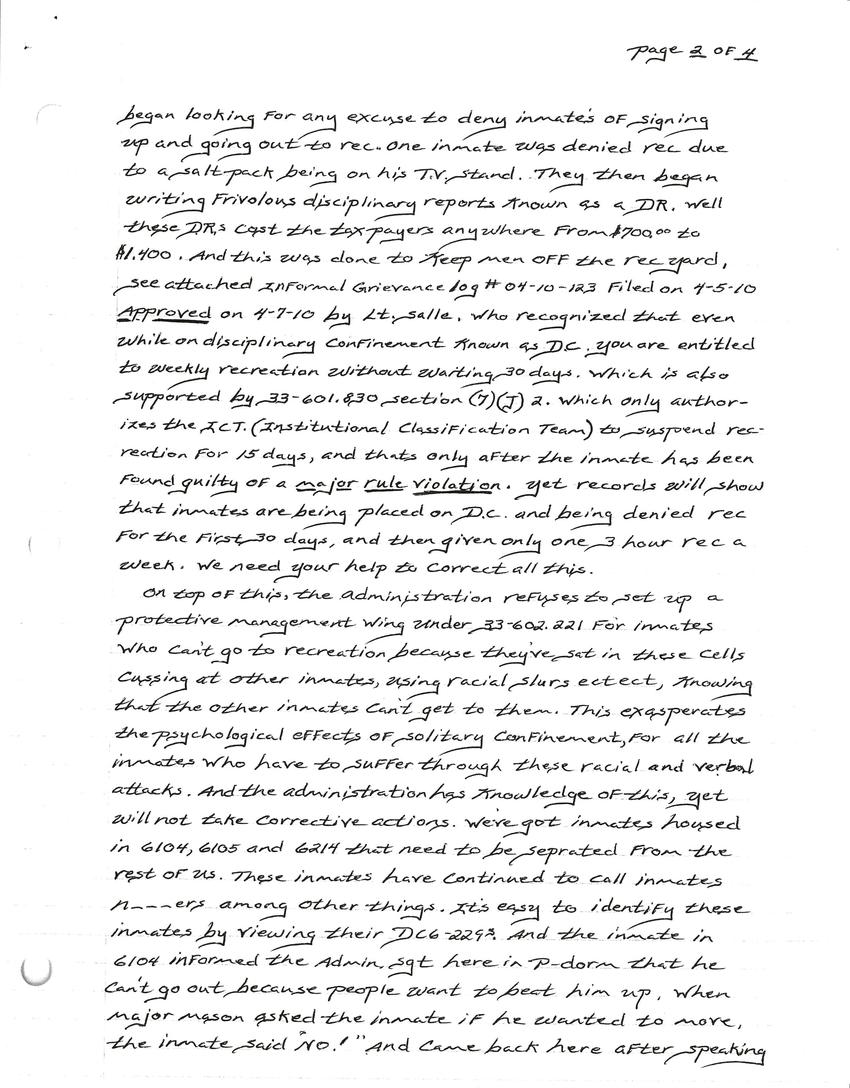 page 2 OF 4
began looking For any excuse to deny inmate's OF signing
up and going out to rec.. One inmate was denied rec due
to a salt-pack being on his T.V. stand.. They then began
writing Frivolous disciplinary reports known as a DR. Well
these DRs cost the tax payers anywhere From $700.00 to
$1,400. And this was done to keep men OFF the rec yard,
see attached InFormal Grievance log # 04-10-123 Filed on 4-5-10
Approved on 4-7-10 by Lt. Salle. Who recognized that even
while on disciplinary ConFinement known as D.C. you are entitled
to weekly recreation without waiting 30 days. Which is also
supported by 33-601.830 section (7)(J) 2. which only author-
izes the I.C.T. (Institutional ClassiFication Team) to suspend rec-
reation For 15 days, and thats only aFter the inmate has been
Found guilty oF a major rule violation. Yet records will show
that inmates are being placed on D.C. and being denied rec
For the First 30 days, and then given only one 3 hour rec a
week. We need your help to Correct all this.
On top oF this, the administration reFuses to set up a
protective management wing under 33-602.221 For inmates
Who Can't go to recreation because they've sat in these Cells
Cussing at other inmates, using racial slurs ectect, Knowing
that the other inmates Can't get to them. This exasperates
the psychological eFFects OF solitary ConFinement, For all the
inmates Who have to suFFer through these racial and verbal
attacks. And the administration has Knowledge OF this, yet
will not take Corrective actions. We've got inmates housed
in 6104, 6105 and 6214 that need to be seprated From the
rest OF us. These inmates have Continued to call inmates
n---ers among other things. It's easy to identiFy these
inmates by viewing their DC6-229's. And the inmate in
6104 inFormed the Admin. sgt here in P-dorm that he
Can't go out because people want to beat him up. When
major mason asked the inmate iF he wanted to move,
the inmate said "NO!" And Came back here aFter speaking